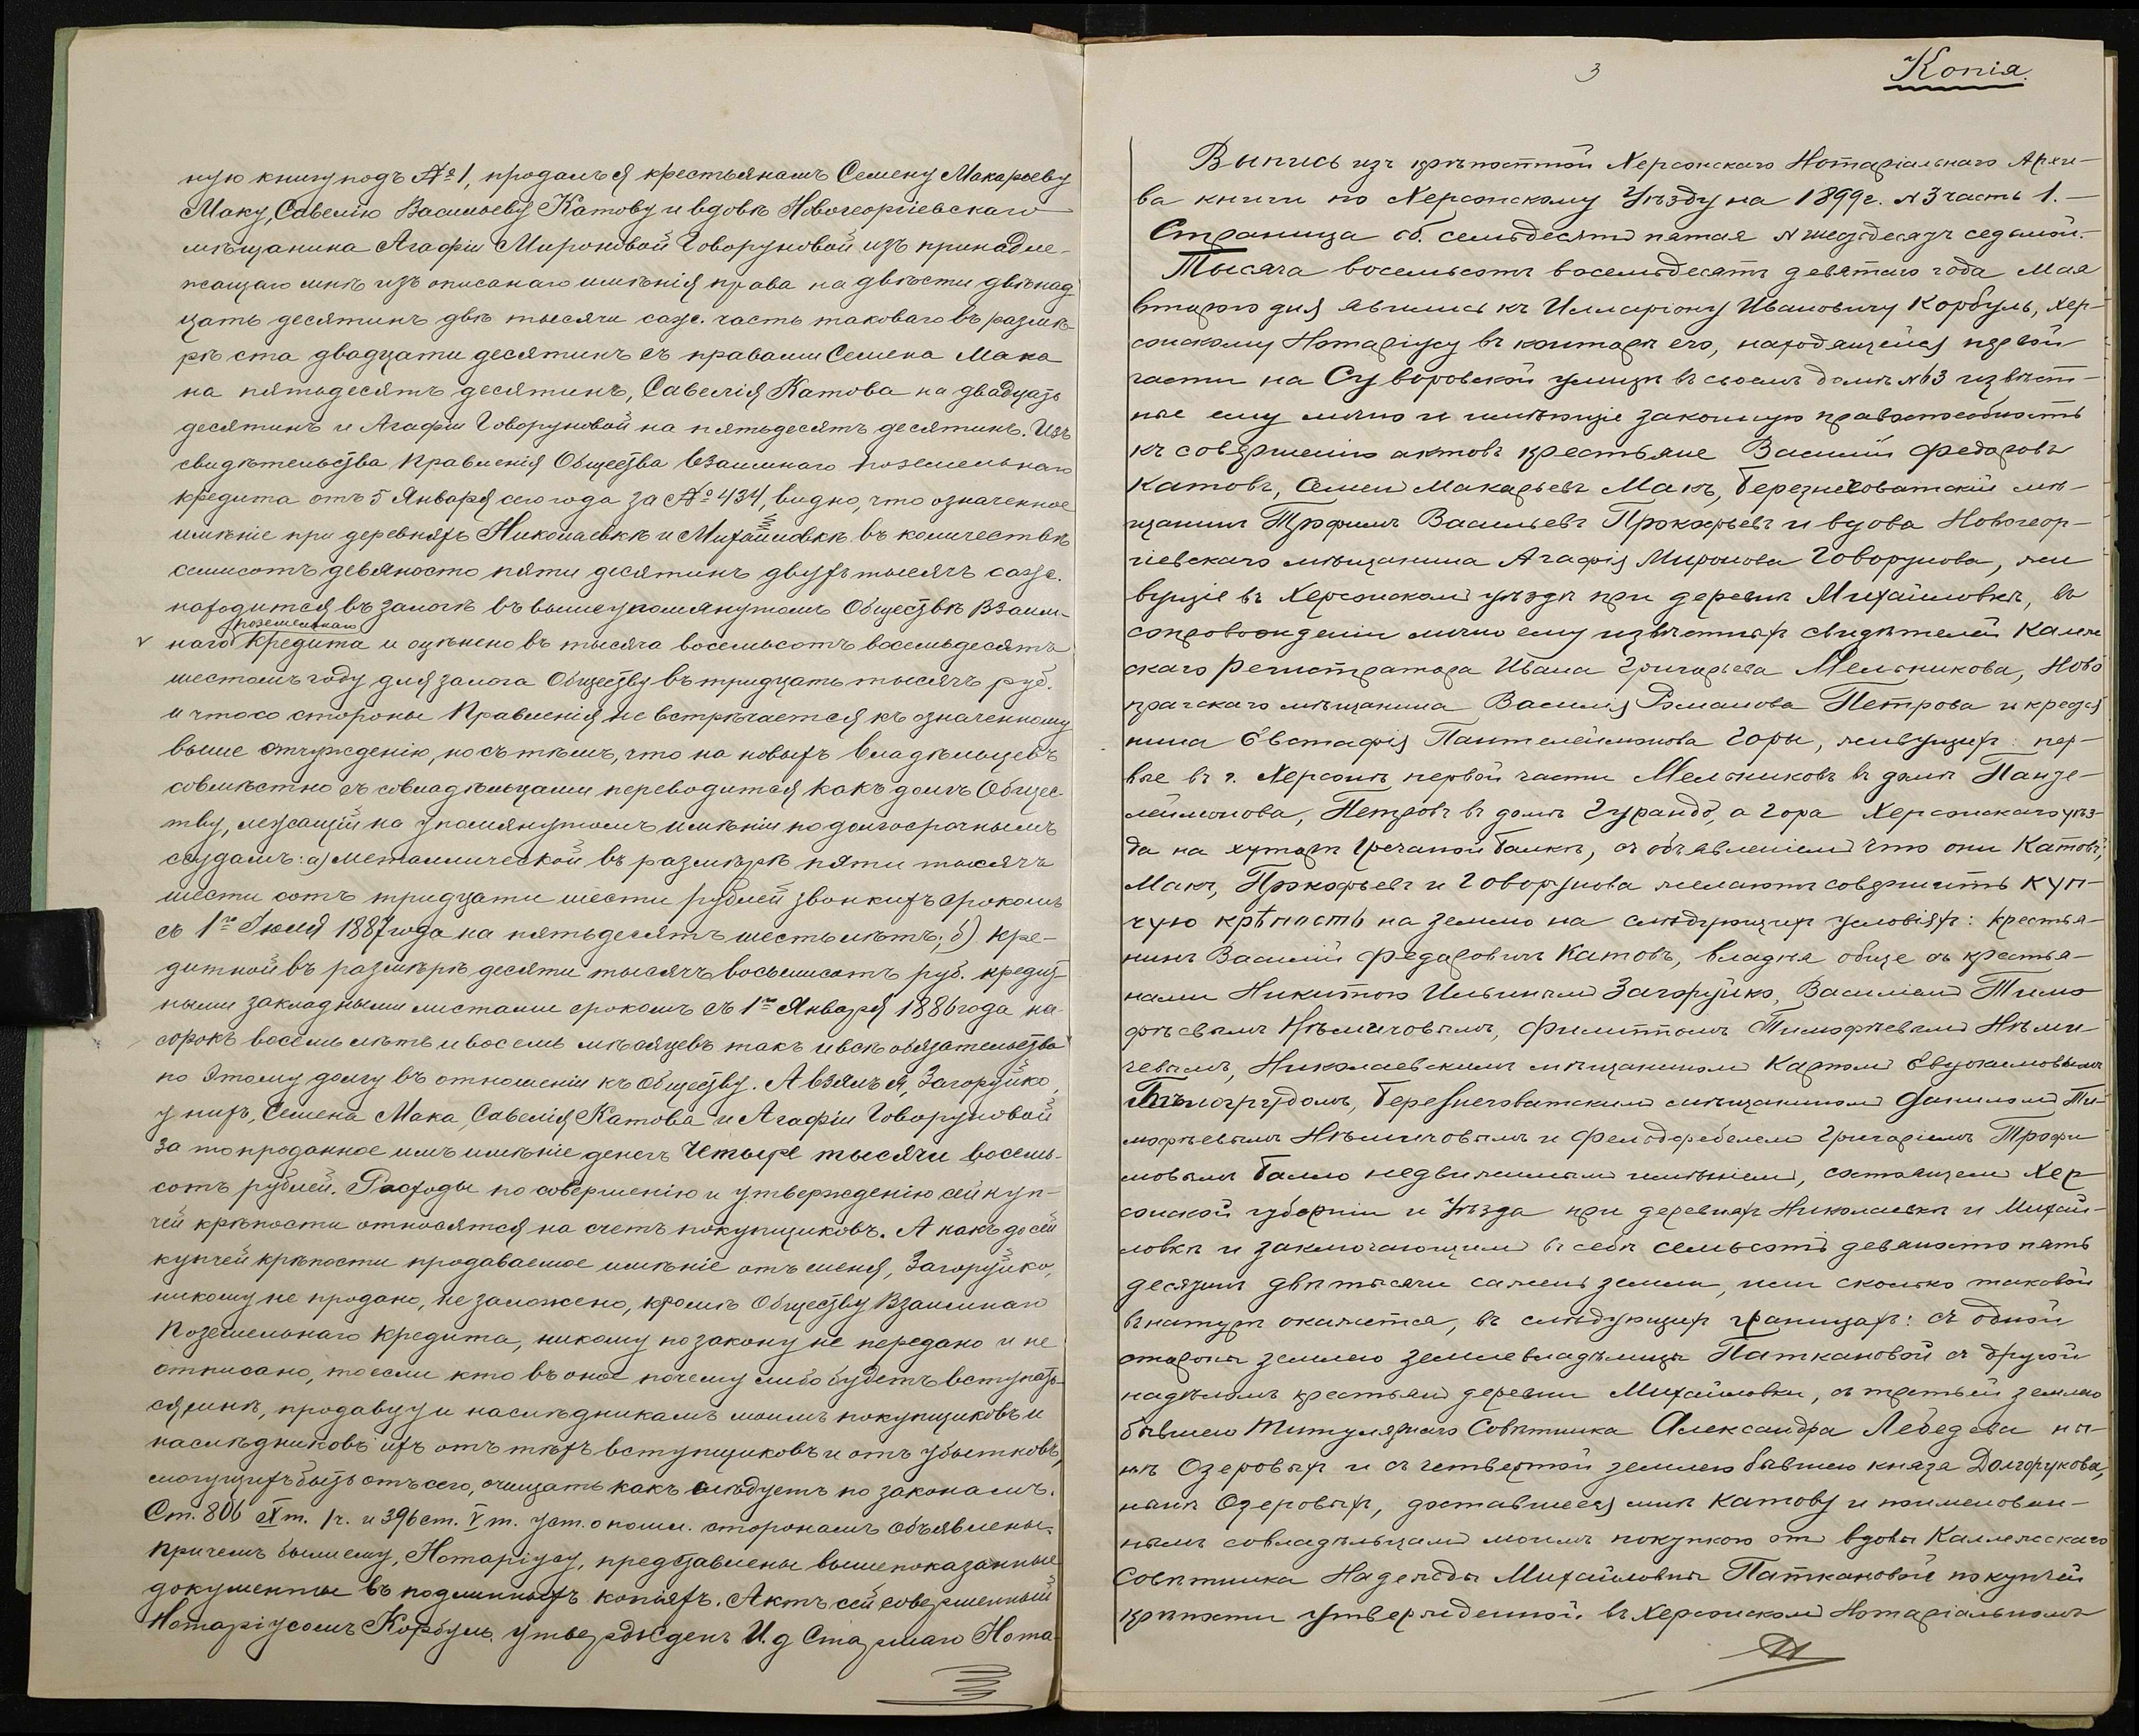 ную книгу подъ № 1, продалъ я крестьянамъ Семену Макарьеву
Маку, Савелію Васильеву Катову и вдовѣ Новогеоргіевскаго
мѣщанина Агафіи Мироновой Говоруновой изъ принадле-
жащаго мнѣ изъ описанаго имѣнія права на двѣсти двѣнад
цать десятинъ двѣ тысячи саж. часть таковаго въ размѣ-
рѣ ста двадцати десятинъ съ правами Семена Мака
на пятьдесятъ десятинъ, Савелія Катова на двадцать
десятинъ и Агафіи Говоруновой на пятьдесятъ десятинъ. Изъ
свидѣтельства Правленія Общества Взаимнаго Поземельнаго
Кредита отъ 5 Января сего года за № 434, видно, что означенное
имѣніе при деревняхъ Николаевкѣ и Михайловкѣ въ количествѣ
семисотъ девяносто пяти десятинъ двухъ тысячъ саж.
находится въ залогѣ въ вышеупомянутомъ Обществѣ Взаим-
поземельнаго
наго Кредита и оцѣнено въ тысяча восемьсотъ восемьдесятъ
шестомъ году для залога Обществу въ тридцать тысячъ руб.
и что со стороны Правленія не встрѣчается къ означенному
выше отчужденію, но съ тѣмъ, что на новыхъ владѣльцевъ
совмѣстно съ совладѣльцами переводится какъ долгъ Общес-
тву, лежащій на упомянутомъ имѣніи по долгосрочнымъ
ссудамъ: а) металлической въ размѣрѣ пяти тысячъ
шести сотъ тридцати шести рублей звонкихъ срокомъ
съ 1го Іюля 1887 года на пятьдесятъ шесть лѣтъ; б) кре-
дитной въ размѣрѣ десяти тысячъ восьмисотъ руб. кредит
ными закладными листами срокомъ съ 1го Января 1886 года на
сорокъ восемь лѣтъ и восемь мѣсяцевъ такъ и всѣ обязательства
по этому долгу въ отношеніи къ Обществу. А взялъ я, Загоруйко,
у нихъ, Семена Мака, Савелія Катова и Агафіи Говоруновой
за то проданное имъ имѣніе денегъ четыре тысячи восемь-
сотъ рублей. Расходы по совершенію и утвержденію сей куп-
чей крѣпости относятся на счетъ покупщиковъ. А какъ до сей
купчей крѣпости продаваемое имѣніе отъ меня, Загоруйко,
никому не продано, не заложено, кромѣ Обществу Взаимнаго
Поземельнаго Кредита, никому по закону не передано и не
отписано, то если кто въ оное почему либо будетъ вступать-
ся, мнѣ, продавцу и наслѣдникамъ моимъ покупщиковъ и
наслѣдниковъ ихъ отъ тѣхъ вступщиковъ и отъ убытковъ,
могущихъ быть отъ сего, очищать какъ слѣдуетъ по законамъ.
Ст. 806 X т. 1 ч. и 396 ст. V т. уст. о пошл. сторонамъ объявлены.
Причемъ были ему, Нотаріусу, представлены вышепоказанные
документы въ подлинныхъ копіяхъ. Актъ сей совершенный
Нотаріусомъ Корбуль, утвержденъ И. д Старшаго Нота-
3
Копія.
Выпись изъ крѣпостной Херсонскаго Нотаріальнаго Архи-
ва книги по Херсонскому Уѣзду на 1899 г. № 3 часть 1.—
Страница об. семьдесятъ пятая № шестьдесятъ седьмой.
Тысяча восемьсотъ восемьдесятъ девятаго года Мая
втораго дня явились къ Илларіону Ивановичу Корбуль, Хер-
сонскому Нотаріусу въ контору его, находящейся первой
части на Суворовской улицѣ въ своемъ домѣ № 63 извѣст-
ные ему лично и имѣющіе законную правоспособность
къ совершенію актовъ крестьяне Василій Федоровъ
Катовъ, Семенъ Макарьевъ Макъ, Березнеговатскій мѣ-
щанинъ Трофимъ Васильевъ Прокофьевъ и вдова Новогеор-
гіевскаго мѣщанина Агафія Миронова Говорунова, жи
вущіе въ Херсонскомъ уѣздѣ при деревнѣ Михайловкѣ, въ
сопровожденіи лично ему извѣстныхъ свидѣтелей Коллеж
скаго Регистратора Ивана Григорьева Мельникова, Ново
прагскаго мѣщанина Василія Романова Петрова и кресья
нина Евстафія Пантелеймонова Горы, живущихъ: пер-
вые въ г. Херсонѣ первой части Мельниковъ въ домѣ Панте-
леймонова, Петровъ въ домѣ Гурандо, а Гора Херсонскаго уѣз-
да на хуторѣ Гречаной балкѣ, съ объявленіемъ что они Катовъ,
Макъ, Прокофьевъ и Говорунова желаютъ совершить куп-
чую крѣпость на землю на слѣдующихъ условіяхъ: крестья-
нинъ Василій Федоровичъ Катовъ, владѣя обще съ крестья-
нами Никитою Ильинымъ Загоруйко, Василіемъ Тимо
фѣевымъ Нѣмичовымъ, Филиппомъ Тимофѣевымъ Нѣми
чевымъ, Николаевскимъ мѣщаниномъ Карпомъ Евдокимовымъ
Бѣлогрудомъ, Березнеговатскимъ мѣщаниномъ Даниломъ Ти-
мофѣевымъ Нѣмичовымъ и Фельдфебелемъ Григоріемъ Трофи
мовымъ Балло недвижимымъ имѣніемъ, состоящемъ Хер
сонской губерніи и Уѣзда при деревняхъ Николаевкѣ и Михай-
ловкѣ и заключающимъ въ себѣ семьсотъ девяносто пять
десятинъ двѣ тысячи саженъ земли, или сколько таковой
въ натурѣ окажется, въ слѣдующихъ границахъ: съ одной
стороны землею землевладѣлицы Паткановой съ другой
надѣломъ крестьянъ деревни Михайловки, съ третьей землею
бывшею Титулярнаго Совѣтника Александра Лебедева ны-
нѣ Озеровыхъ и съ четвертой землею бывшею князя Долгорукова,
нынѣ Озеровыхъ, доставшееся мнѣ Катову и поименован-
нымъ совладѣльцамъ моимъ покупкою отъ вдовы Коллежскаго
Совѣтника Надежды Михайловны Паткановой по купчей
крѣпости утвержденной въ Херсонскомъ Нотаріальномъ